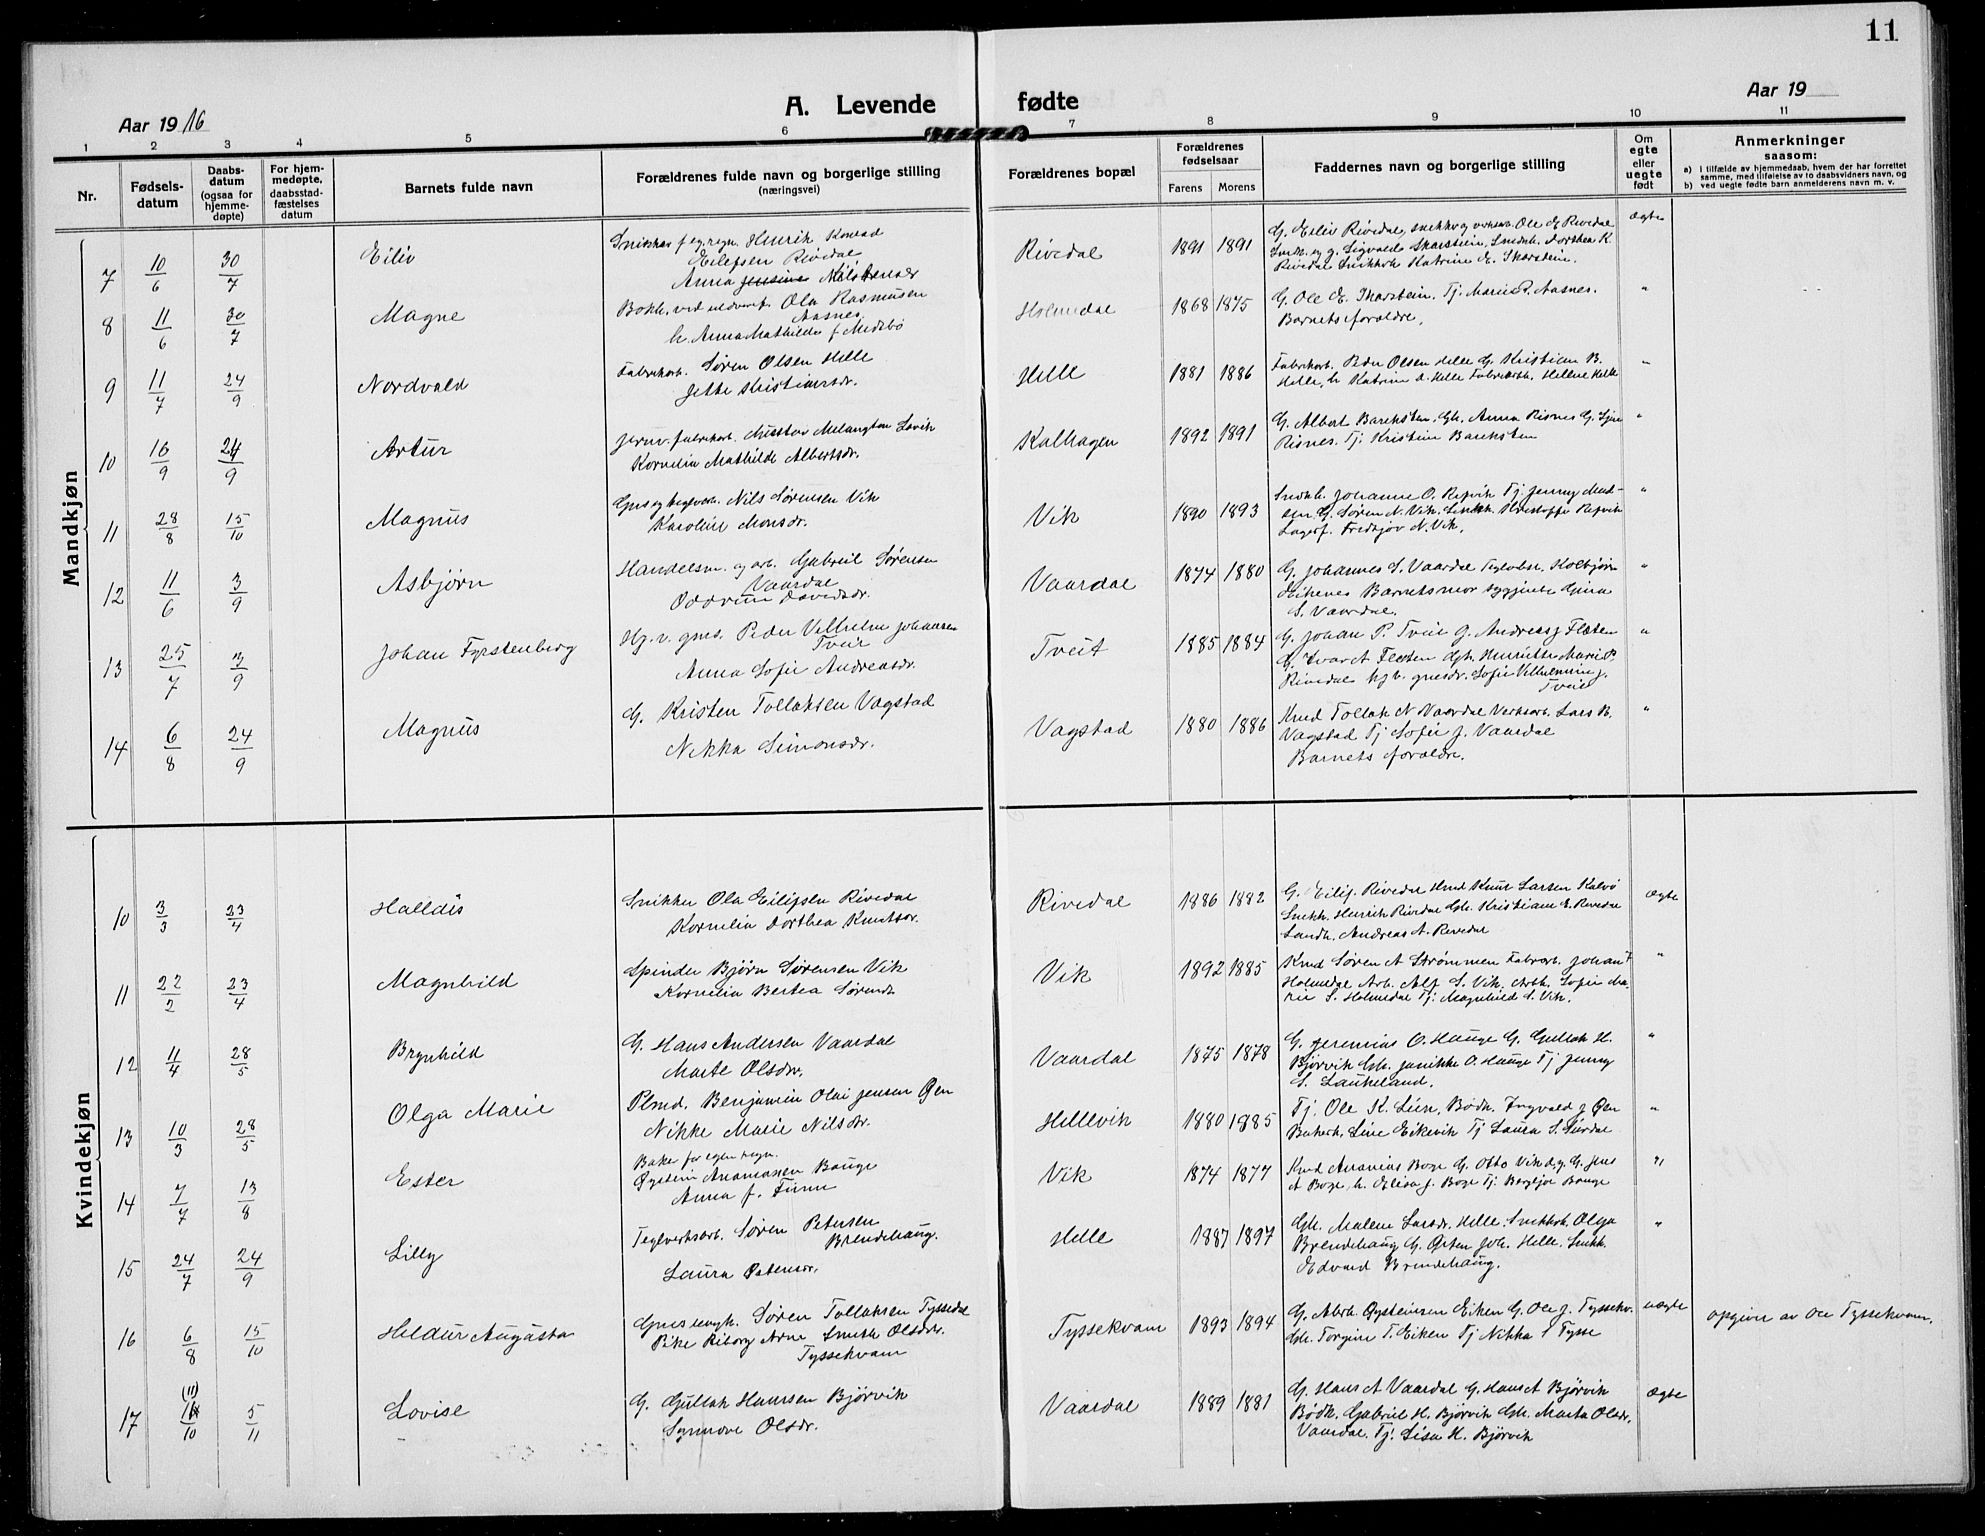 11
A. Levende fødte
Aar 1916
Aar 19
1 2 3 4 5 6 7 8 9 10 11
Nr.
Fødsels-
datum
Daabs-
datum
(ogsaa for
hjemme-
døpte)
For hjem-
medøpte,
daabsstad-
fæstelses
datum
Barnets fulde navn
Forældrenes fulde navn og borgerlige stilling
(næringsvei)
Forældrenes bopæl
Forældrenes
fødselsaar
Farens Morens
Faddernes navn og borgerlige stilling
Om
egte
eller
uegte
født
Anmerkninger
saasom:
a) I tilfælde av hjemmedaab, hvem der har forrettet
samme, med tilføielse av to daabsvidners navn, og
b) ved uegte fødte barn anmelderens navn m. v.
Mandkjøn
7 10/6 30/7 Eiliv
Henrik Konrad
Eilefsen Rivedal
Anna
Rivedal 1891 1891
G. Eiliv Rivedal, Ole E. Rivedal
Sigvald Skarstein, Dorthea K.
Rivedal Katrine E. Skarstein.
Ægte
8 11/6 30/7 Magne
Ola Rasmusen
Aasnes
h. Anna Mathilde f. Medsbø
Holmedal 1868 1875
G. Ole E. Skarstein. Tj. Marie R. Aasnes.
Barnets forældre.
"
9 11/7 24/9 Nordvald
Fabrikarb. Søren Olsen Helle
Jette Kristiansdr.
Helle 1881 1886
Fabrikarb. Peder Olsen Helle G. Kristian B.
Helle, h. Katrine A. Helle Fabrikarb. Helene Helle
"
10 16/9 24/9 Artur
fabrikarb. Gustav Melangton Løvik
Kornelia Mathilde Albertsdr.
Kalhagen 1892 1891
G. Albert Bareksten, Gh. Anna Risnes G.
Risnes. Tj. Kristine Bareksten
"
11 28/8 15/10 Magnus
Nils Sørensen Vik
Karoline Monsdr.
Vik 1890 1893
Johanne O. Repvik Tj. Jenny
G. Søren N. Vik. Kristoffer Repvik
Fredtjov N. Vik.
"
12 11/6 3/9 Asbjørn
Handelsm. og arb. Gabriel Sørensen
Vaardal
Oddrun Davidsdr.
Vaardal 1874 1880
G. Johannes S. Vaardal Kolbjørn
Eikenes Barnets mor Gina
S. Vaardal.
"
13 25/7 3/9 Johan Fyrstenberg
Peder Vilhelm Johansen
Tveit
Anna Sofie Andreasdr.
Tveit 1885 1884
G. Johan P. Tveit G. Andreas J. Fleten
G. Ivar A. Fleten Gh. Henriette Marie P.
Rivedal Sofie Vilhelmine J.
Tveit
"
14 6/8 24/9 Magnus
G. Kristen Tollaksen Vagstad
Nikka Simonsdr.
Vagstad 1880 1886
Kmd Tollak N. Vaardal Lars B.
Vagstad Tj Sofie J. Vaardal
Barnets forældre.
"
Kvindekjøn
10 3/3 23/4 Halldis
Snikker Ola Eilifsen Rivedal
Kornelia Dorthea Knutsdr.
Rivedal 1886 1882
G. Eilif Rivedal Kmd Knut Larsen Kalvø
Snekk. Henrik Rivedal Gh. Kristiane E. Rivedal
Landh. Andreas A. Rivedal
Ægte
11 22/2 23/4 Magnhild
Spinder Bjørn Sørensen Vik
Kornelia Bertea Sørensdr.
Vik 1892 1885
Kmd Søren A. Strømmen Fabrarb. Johan
Holmedal Arb. Alf S. Vik. Sofie Ma-
rie S. Holmedal Tj. Magnhild S. Vik.
"
12 11/4 28/5 Brynhild
G. Hans Andersen Vaardal
Marte Olsdr.
Vaardal 1875 1878
G. Jeremias O. Hauge G. Gullak H.
Bjørvik Gh. Janikke O. Hauge Tj Jenny
S. Laukeland.
"
13 10/3 28/5 Olga Marie
Plmd. Benjamin Olai Jensen Øen
Nikke Marie Nilsdr.
Hellevik 1880 1885
Tj. Ole K. Lien, Bødk. Ingvald J. Øen
Line Eikevik Tj Laura S. Surdal
"
14 7/7 13/8 Ester
Baker for egen regn.
Øystein Ananiassen Bauge
Anna f. Tunn
Vik 1874 1877
Kmd Ananias Boge G. Otto Vik d.y. G. Jens
A Boge, h. Elisa J. Boge Tj. Bergljot Bauge
"
15 24/7 24/9 Lilly
Teglverksarb. Søren Petersen
Brendehaug.
Laura Petersdr.
Helle 1887 1897
Gh. Malene Larsdr. Helle. Snekkh. Olga
Brendehaug G. Østen Joh. Helle. Snekk.
Edvard Brendehaug.
"
16 6/8 15/10 Hildur Augusta
Søren Tollaksen Tyssedal
Pike Riborg Olsdr.
Tyssekvam
Tyssekvam 1893 1894
G. Øysteinsen Eiken G. Ole J. Tyssekv.
Gh. Torgine T. Eiken Tj Nikka S Tysse
uægte
opgivn av Ole Tyssekvam.
17 (11) 11/10 5/11 Lovise
G. Gullak Hanssen Bjørvik
Synnøve Olsdr.
Vaardal 1889 1881
G. Hans A Vaardal G. Hans A Bjørvik
Bødk. Gabriel H. Bjørvik Gh. Marta Olsdr.
Vaardal. Tj. Lisa H. Bjørvik
Ægte